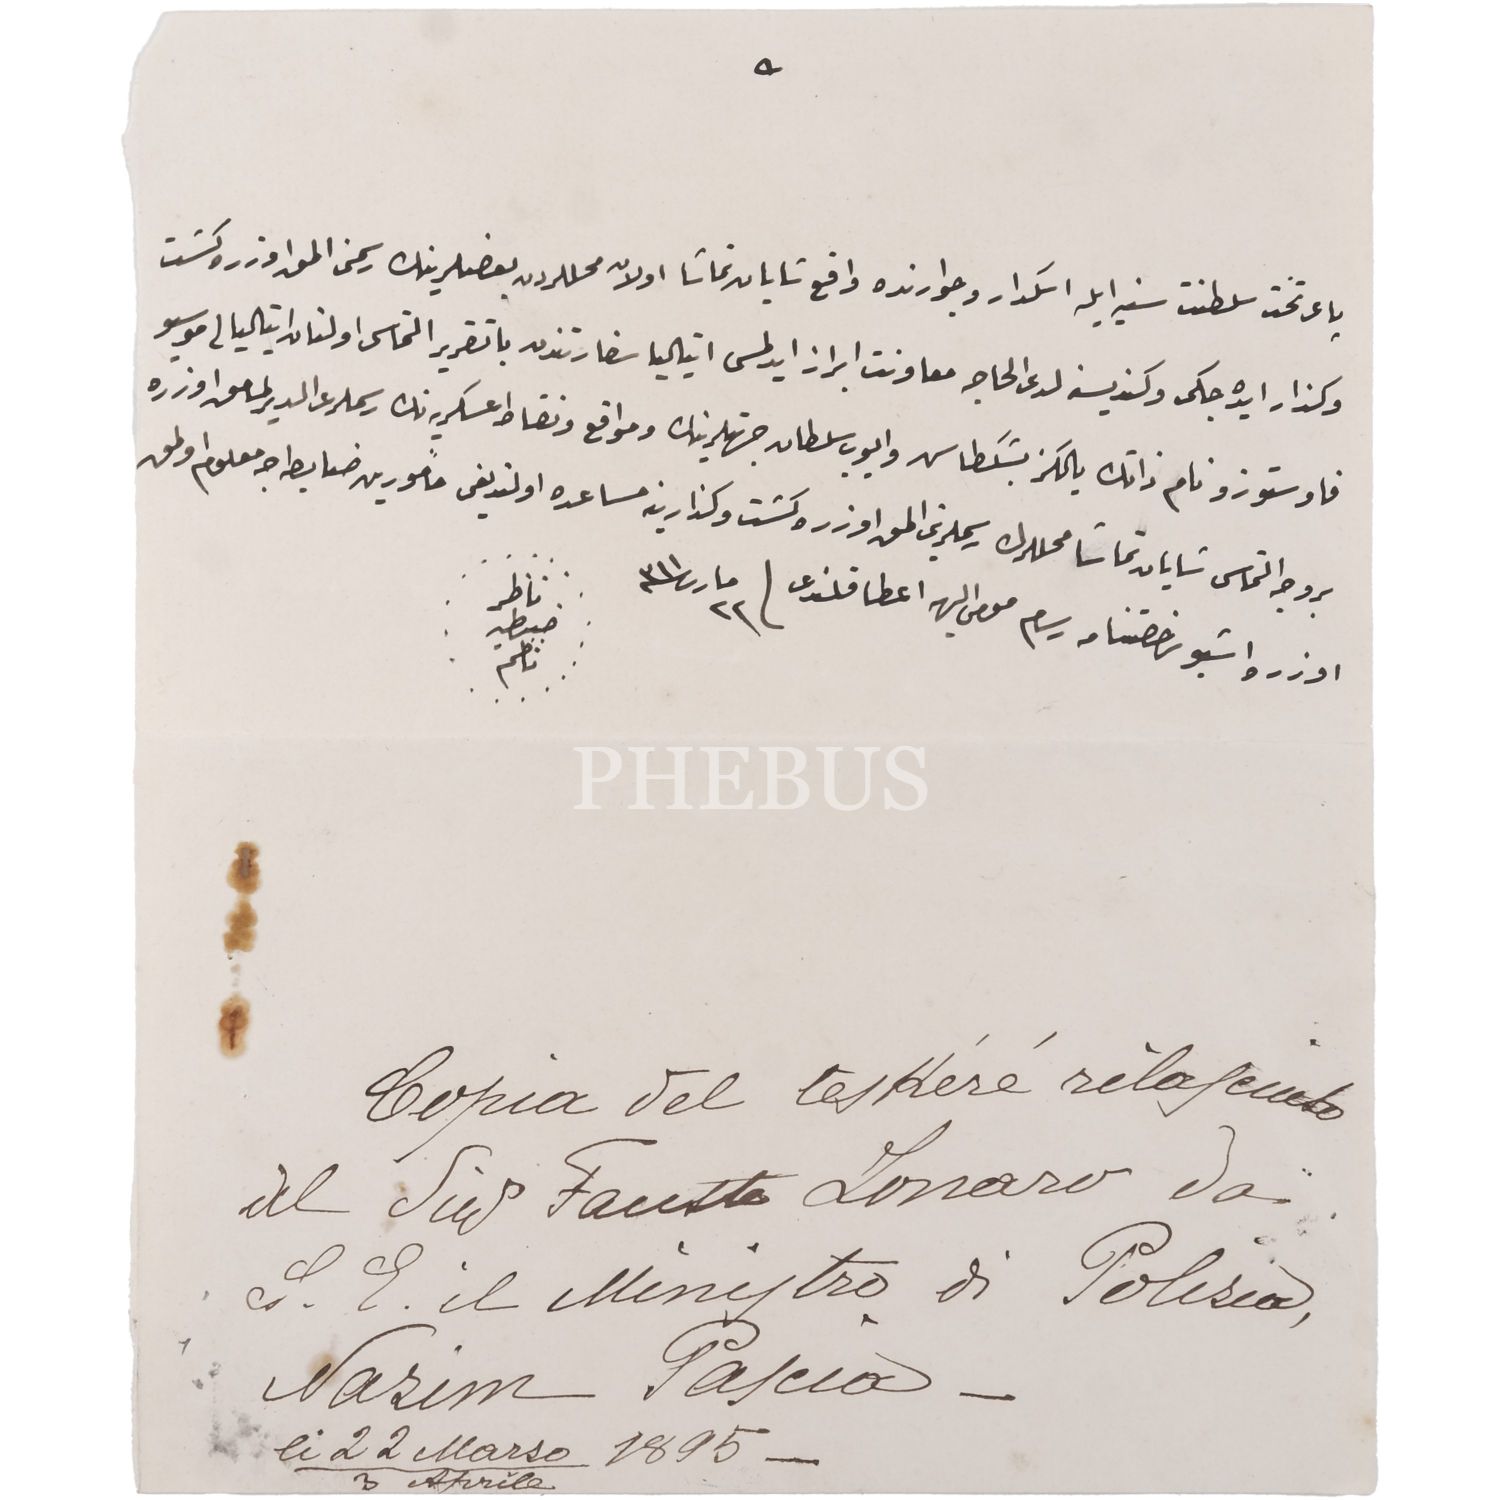 پای تخت سلطنت سنیه ایله اسکدار و جوارنده واقع شایان تماشا اولان محللردن بعضیلرینك رسمنی المق اوزره کشت
و کذار ایده جکی و کندیسنه لدی الحاجه معاونت ابراز ایدلمسی ایتالیا سفارتندن با تقریر التماس اولنان ایتالیالی موسیو
فاوستو زونارو نام ذاتك یالکز بشکطاش و ایوب سلطان جهتلرینك و مواقع و نقاط عسکریه نك رسملری الدیرلمامق اوزره
بر وجه التماس شایان تماشا محللرك رسملرینی المق اوزره کشت و کذارینه مساعده اولندیغی مأمورین ضابطه جه معلوم اولمق
اوزره اشبو رخصتنامه رسام مومی الیه اعطا قلندی
٢٢ مارت ٣١١
ناظر
ضبطیه
ناظم
PHEBUS
Copia del teskéré rilasciato
al Sig Fausto Zonaro da
S. E. il Ministro di Polizia,
Nazim Pascià —
li 22 Marzo 1895 —
3 Aprile